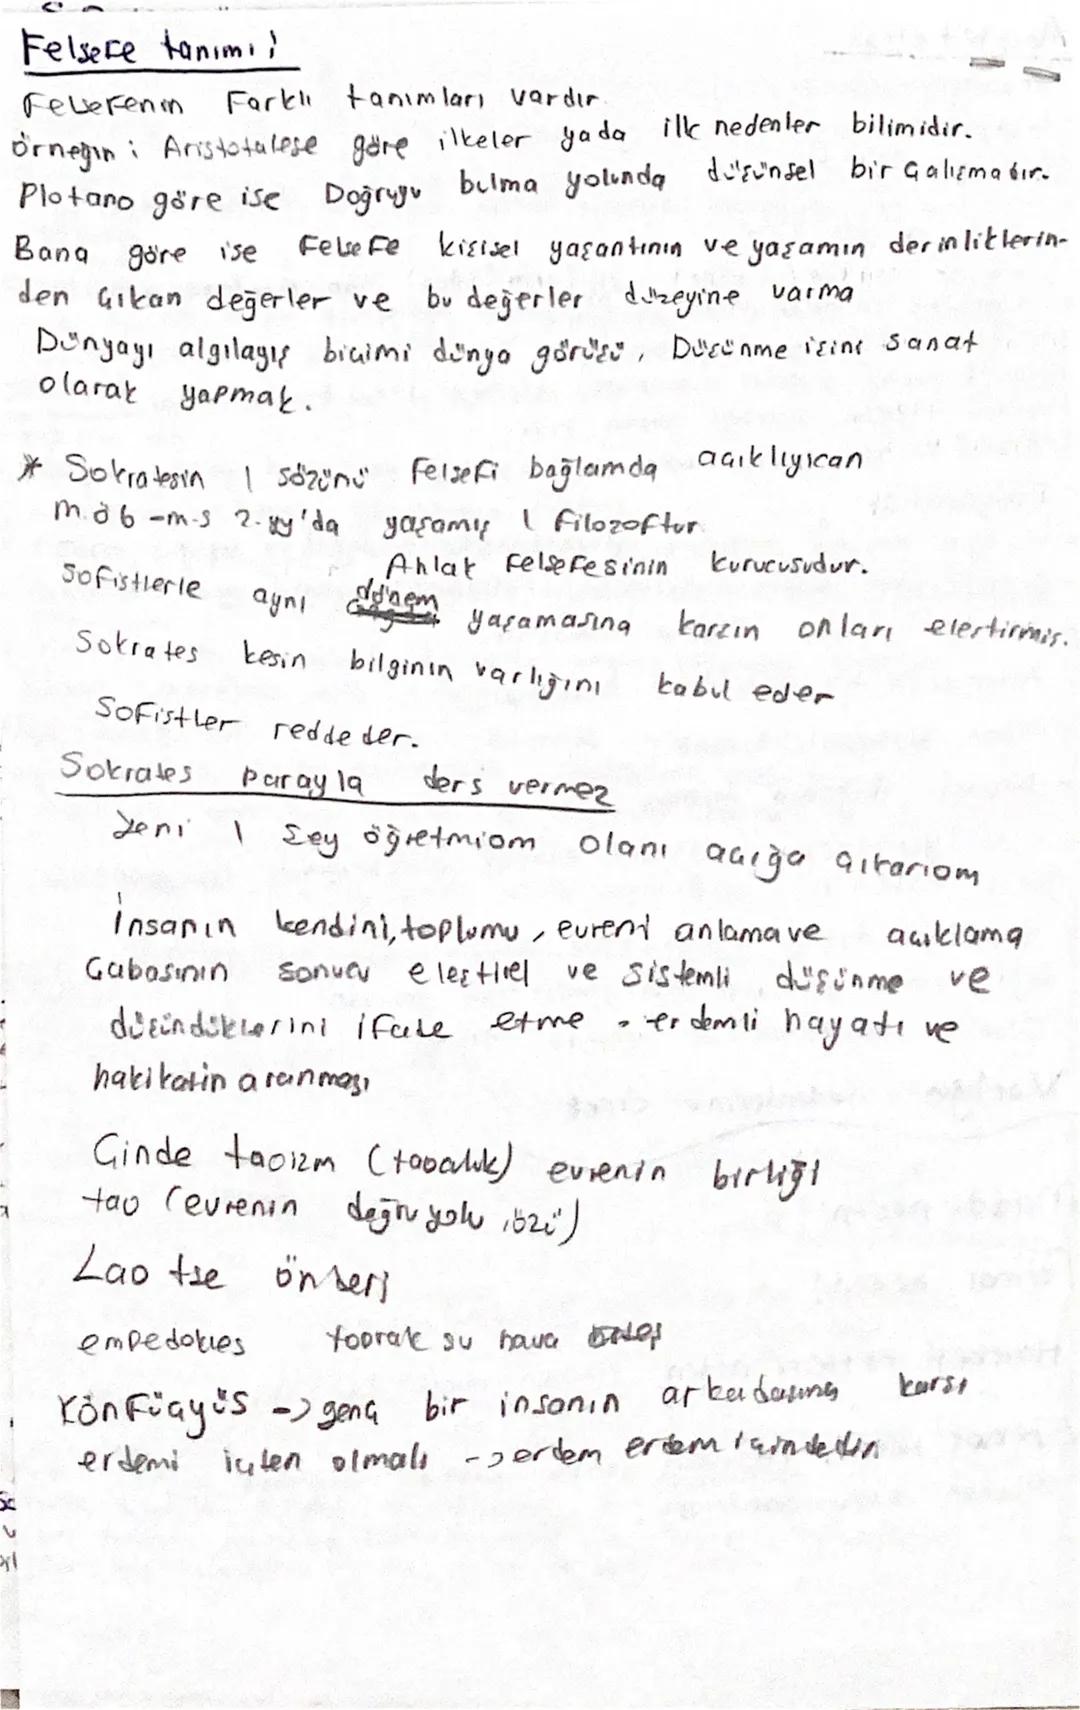 Felsefe tanımı:
Felsefenin Farklı tanımları vardır.
örneğin: Aristotalese göre ilkeler yada ilk nedenler bilimidir.
Platona göre ise Doğruyu bulma yolunda düşünsel bir çalışmadır.
Bana göre ise Felsefe kişisel yaşantının ve yaşamın derinliklerin-
den çıkan değerler ve bu değerler düzeyine varma
Dünyayı algılayış biçimi dünya görüşü, Düşünme işini sanat
olarak yapmak.
* Sokratesin 1 sözünü Felsefi bağlamda açıklıyıcan
m.ö 6 -m.s 2.yy'da yaşamış 1 filozoftur.
Ahlak Felsefesinin kurucusudur.
Sofistlerle aynı dönem yaşamasına karşın onları elertirmiş.
Sokrates kesin bilginin varlığını kabul eder
Sofistler reddeder.
Sokrates parayla ders vermez
Yeni 1 şey öğretmiom olanı açığa çıkarıom
İnsanın kendini, toplumu, evreni anlama ve açıklama
Çabasının sonucu eleştirel ve sistemli düşünme ve
düşündüklerini ifade etme . erdemli hayatı ve
hakikatin aranması
Çinde taoizm (taoculuk) evrenin birliği
tao (evrenin doğru yolu, özü)
Lao tse önderi
empedokles toprak su hava ateş
Konfüçyüs -> genç bir insanın arkadaşına karşı
erdemi içten olmalı -> erdem erdem içindedin